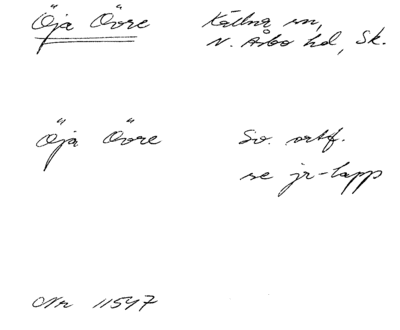 Öja Övre Källna sn,
N. Åsbo hd, Sk.
Öja Övre Sv. ortf.
se jr-lapp
Nr 11547